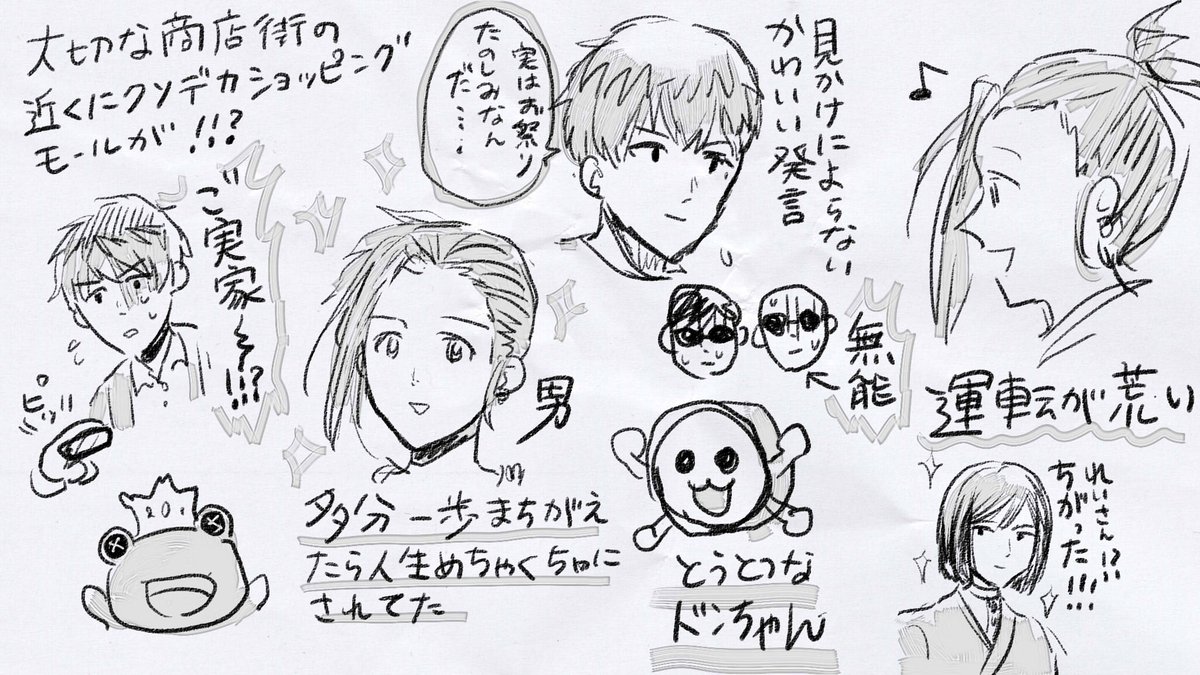 大切な商店街の
近くにクソデカショッピング
モールが!!!?
ご実家〜!!!?
ピッ!!
実はお祭り
たのしみなん
だ……
見かけによらない
かわいい発言
♪
男
多分一歩まちがえ
たら人生めちゃくちゃに
されてた
無能
とうとつな
ドンちゃん
運転が荒い
れいさん!?!
ちがった!!!…